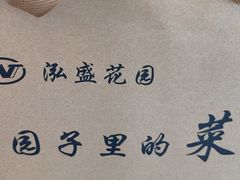 泓盛花园
园子里的菜